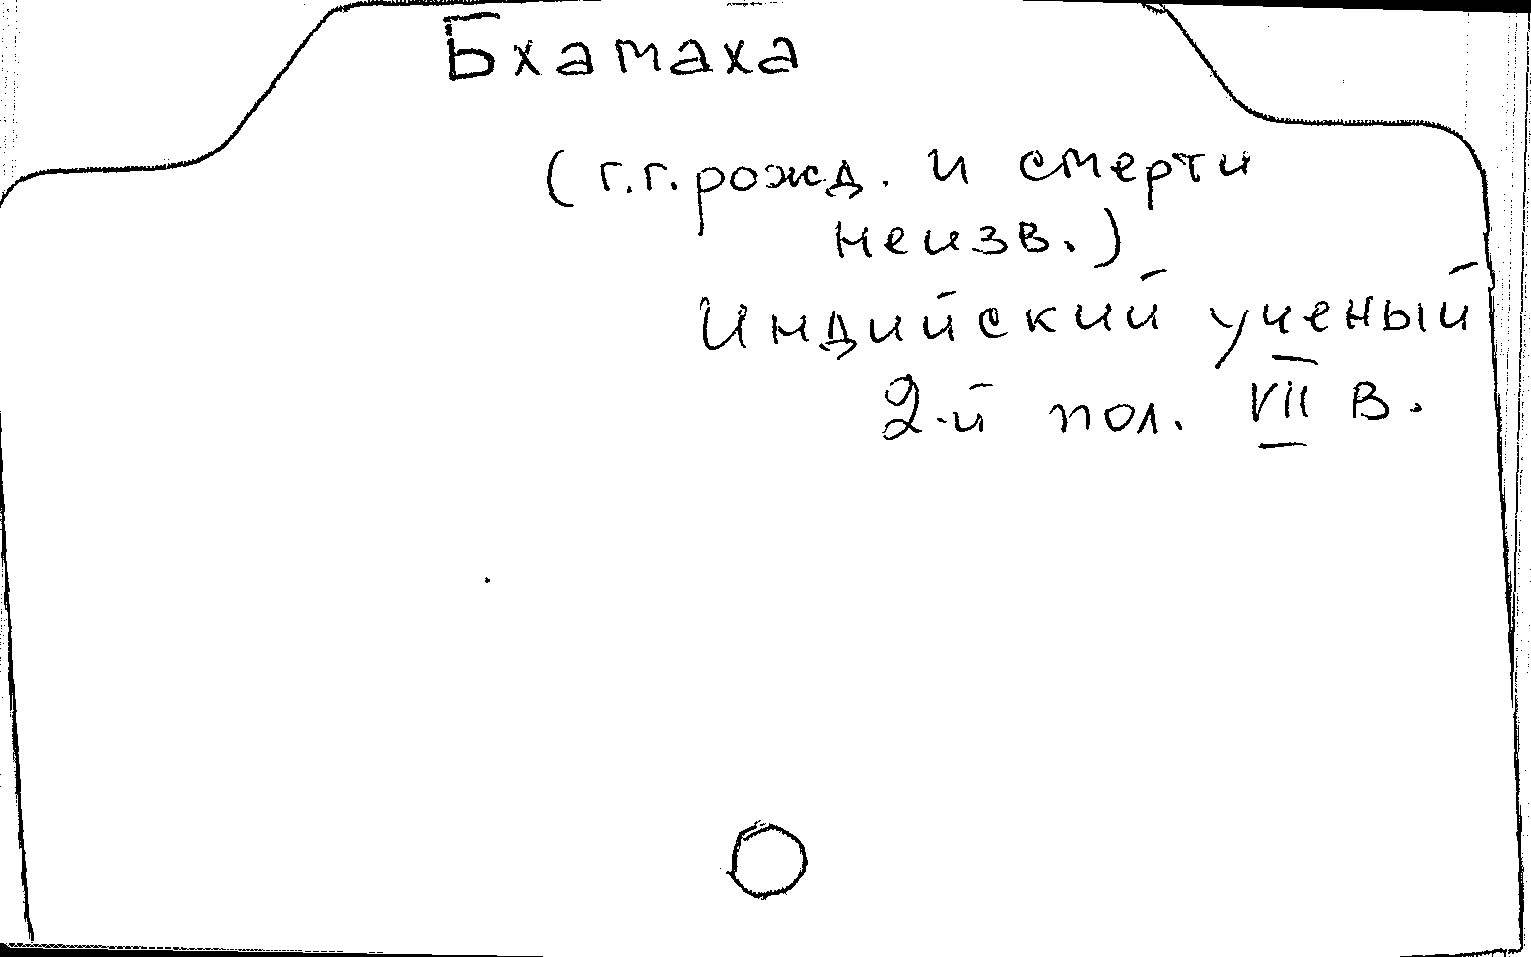 Бхамаха
(г.г. рожд. и смерти
неизв.)
Индийский ученый
2-й пол. VII в.